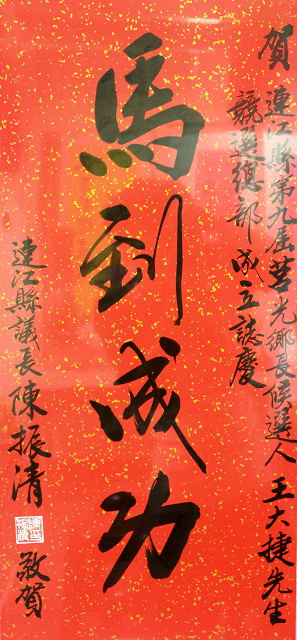 賀 連江縣第九屆莒光鄉長候選人 王大捷先生
競選總部成立誌慶
馬到成功
連江縣議長陳振清 敬賀